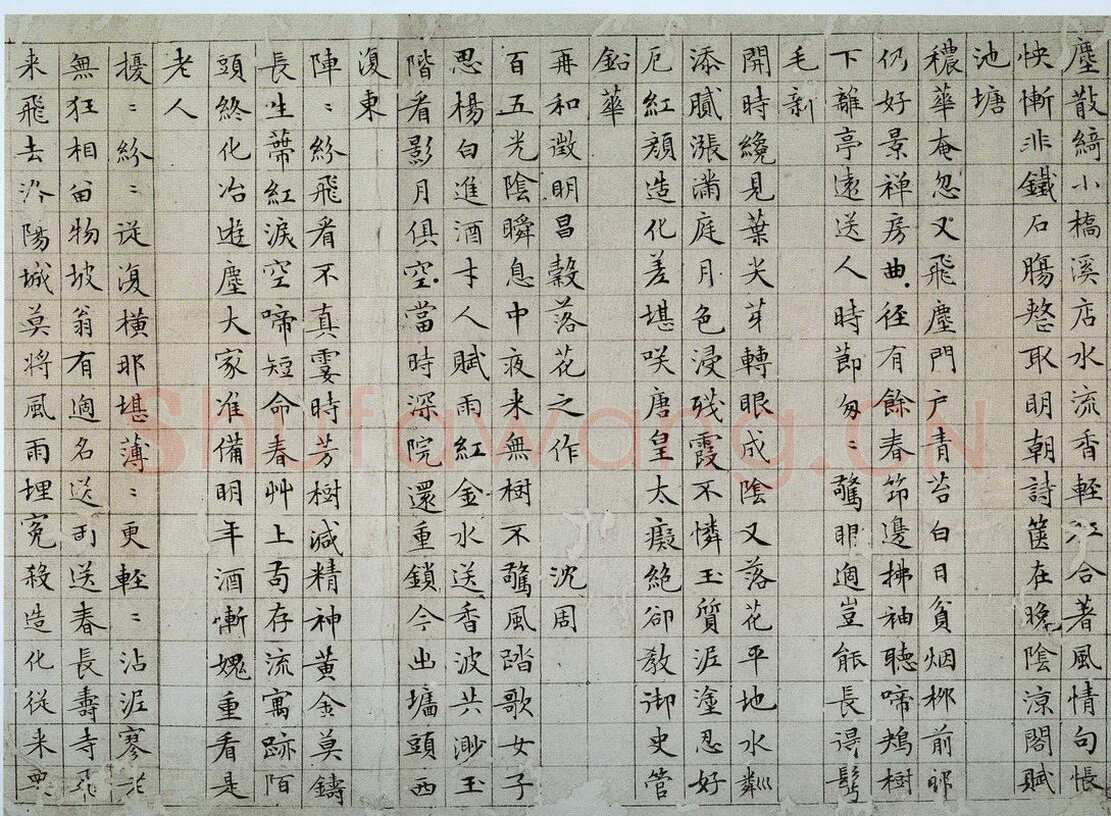 塵散綺小橋溪店水流香輕紅合著風情句悵
怏慚非鐵石腸整取明朝詩篋在晚陰涼閣賦
池塘
穠華奄忽又飛塵門戶青苔白日貧烟栁前郵
仍好景禅房曲徑有餘春笻邊拂袖聽啼鴂樹
下離亭遠送人時節匆〻驚眀過豈能長得髩
毛新
開時纔見葉尖芽轉眼成陰又落花平地水粼
添膩漲滿庭月色浸殘霞不憐玉質泥塗忍好
厄紅顔造化差堪咲唐皇太癡絕卻教御史管
鉛華
再和徵明昌糓落花之作 沈周
百五光陰瞬息中夜来無樹不驚風踏歌女子
思楊白進酒才人賦雨紅金水送香波共渺玉
階看影月俱空當時深院還重鎖今出墻頭西
復東
陣〻紛飛看不真霎時芳樹減精神黄金莫鑄
長生蔕紅淚空啼短命春艸上苟存流寓跡陌
頭終化冶遊塵大家准備明年酒慚媿重看是
老人
擾〻紛〻從復橫那堪薄〻更輕〻沾泥寥
無狂相留物坡翁有過名送雨送春長壽寺飛
来飛去洛陽城莫將風雨埋寃殺造化從来要
Shufawang.CN